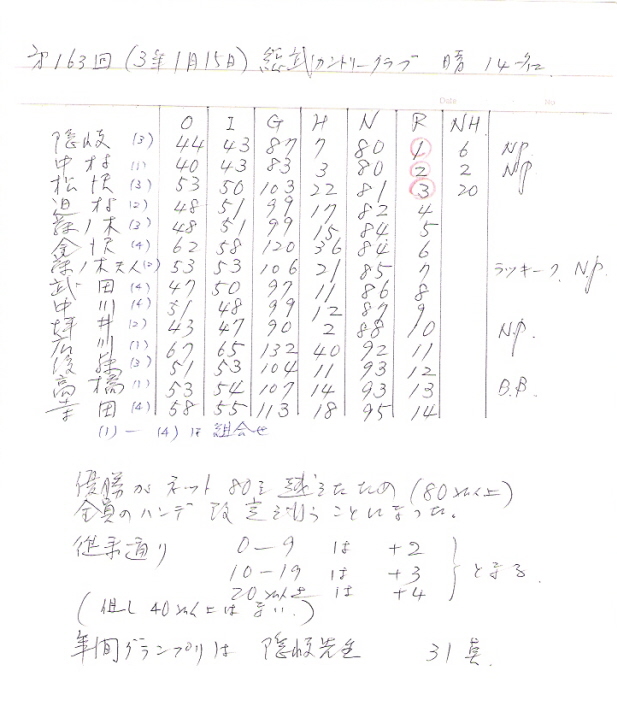 第163回 (3年1月15日) 総武カントリークラブ 晴 14名
Date No
O I G H N R NH
隠岐 (3) 44 43 87 7 80 1 6 N.P.
中村 (1) 40 43 83 3 80 2 2 N.P.
松沢 (3) 53 50 103 22 81 3 20
迫村 (2) 48 51 99 17 82 4
藤ノ木 (3) 48 51 99 15 84 5
金沢 (4) 62 58 120 36 84 6
藤ノ木夫人 (2) 53 53 106 21 85 7 ラッキー7. N.P.
武田 (4) 47 50 97 11 86 8
中川 (4) 51 48 99 12 87 9
坪井 (2) 43 47 90 2 88 10 N.P.
広川 (1) 67 65 132 40 92 11
後 (3) 51 53 104 11 93 12
高橋 (1) 53 54 107 14 93 13 B.B.
幸田 (4) 58 55 113 18 95 14
(1) ー (4) は 組合せ
優勝がネット80を越えたため (80以上)
全員のハンデ改定を行うことになった。
従来通り 0-9 は +2
10-19 は +3 とする.
20以上 は +4
(但し 40以上はない.)
年間グランプリは 隠岐先生 31点.